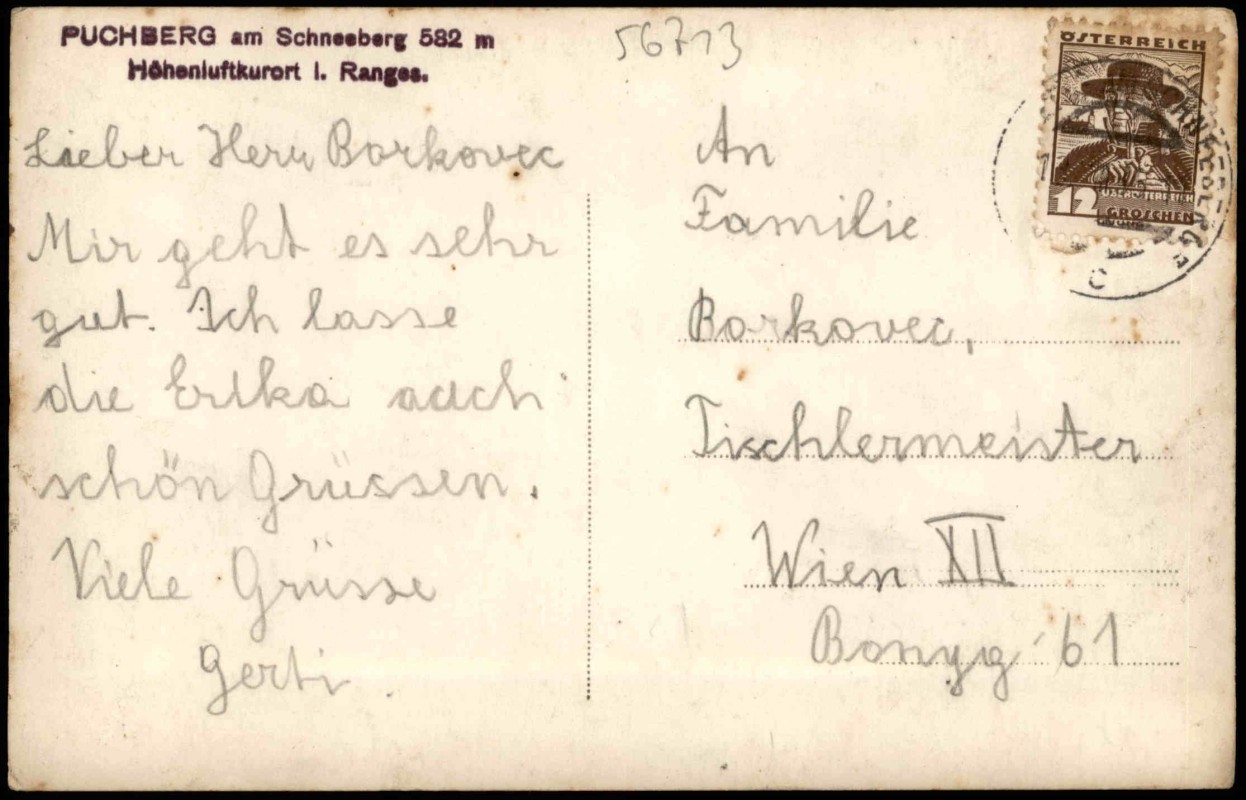 PUCHBERG am Schneeberg 582 m
Höhenluftkurort I. Ranges.
56713
Lieber Herr Borkovec
Mir geht es sehr
gut. Ich lasse
die Erika auch
schön Grüssen.
Viele Grüsse
Gerti.
ÖSTERREICH
12
GROSCHEN
An
Familie
Borkovec,
Tischlermeister
Wien XII
Bonyg 61